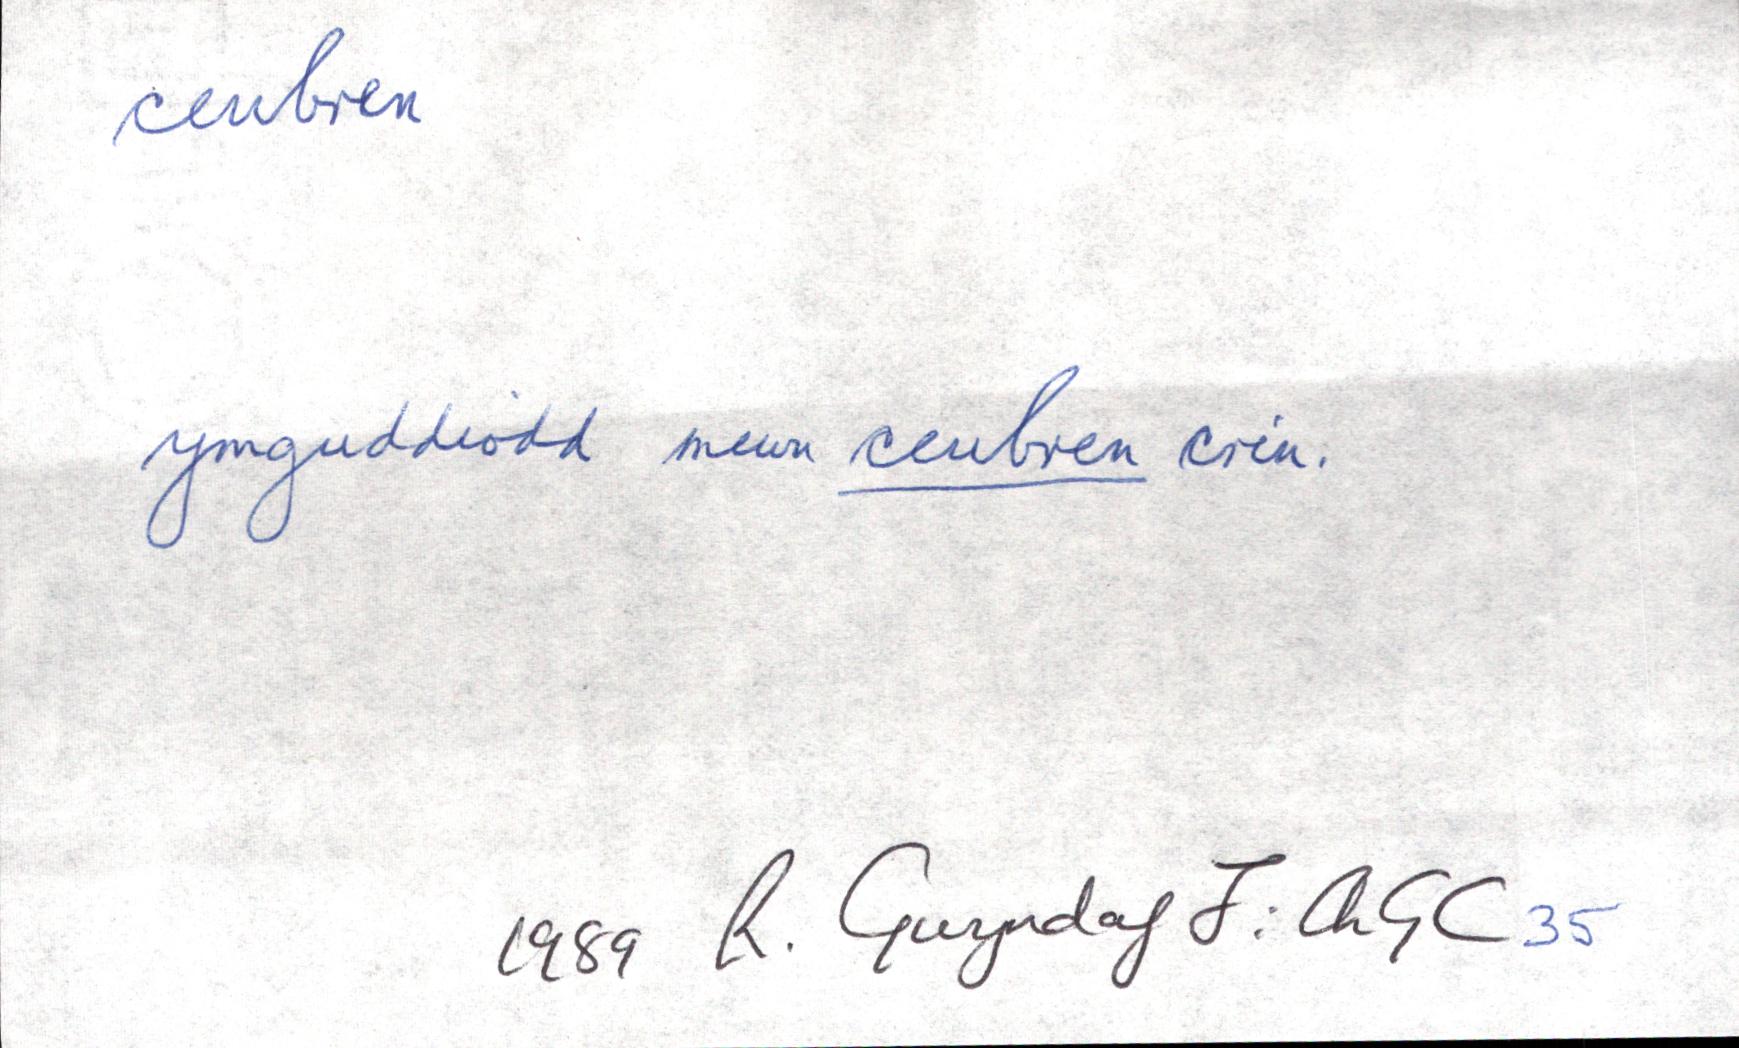 ceubren
ymguddiodd mewn ceubren crin.
1989 R. Gwyndaf J: ChGC 35